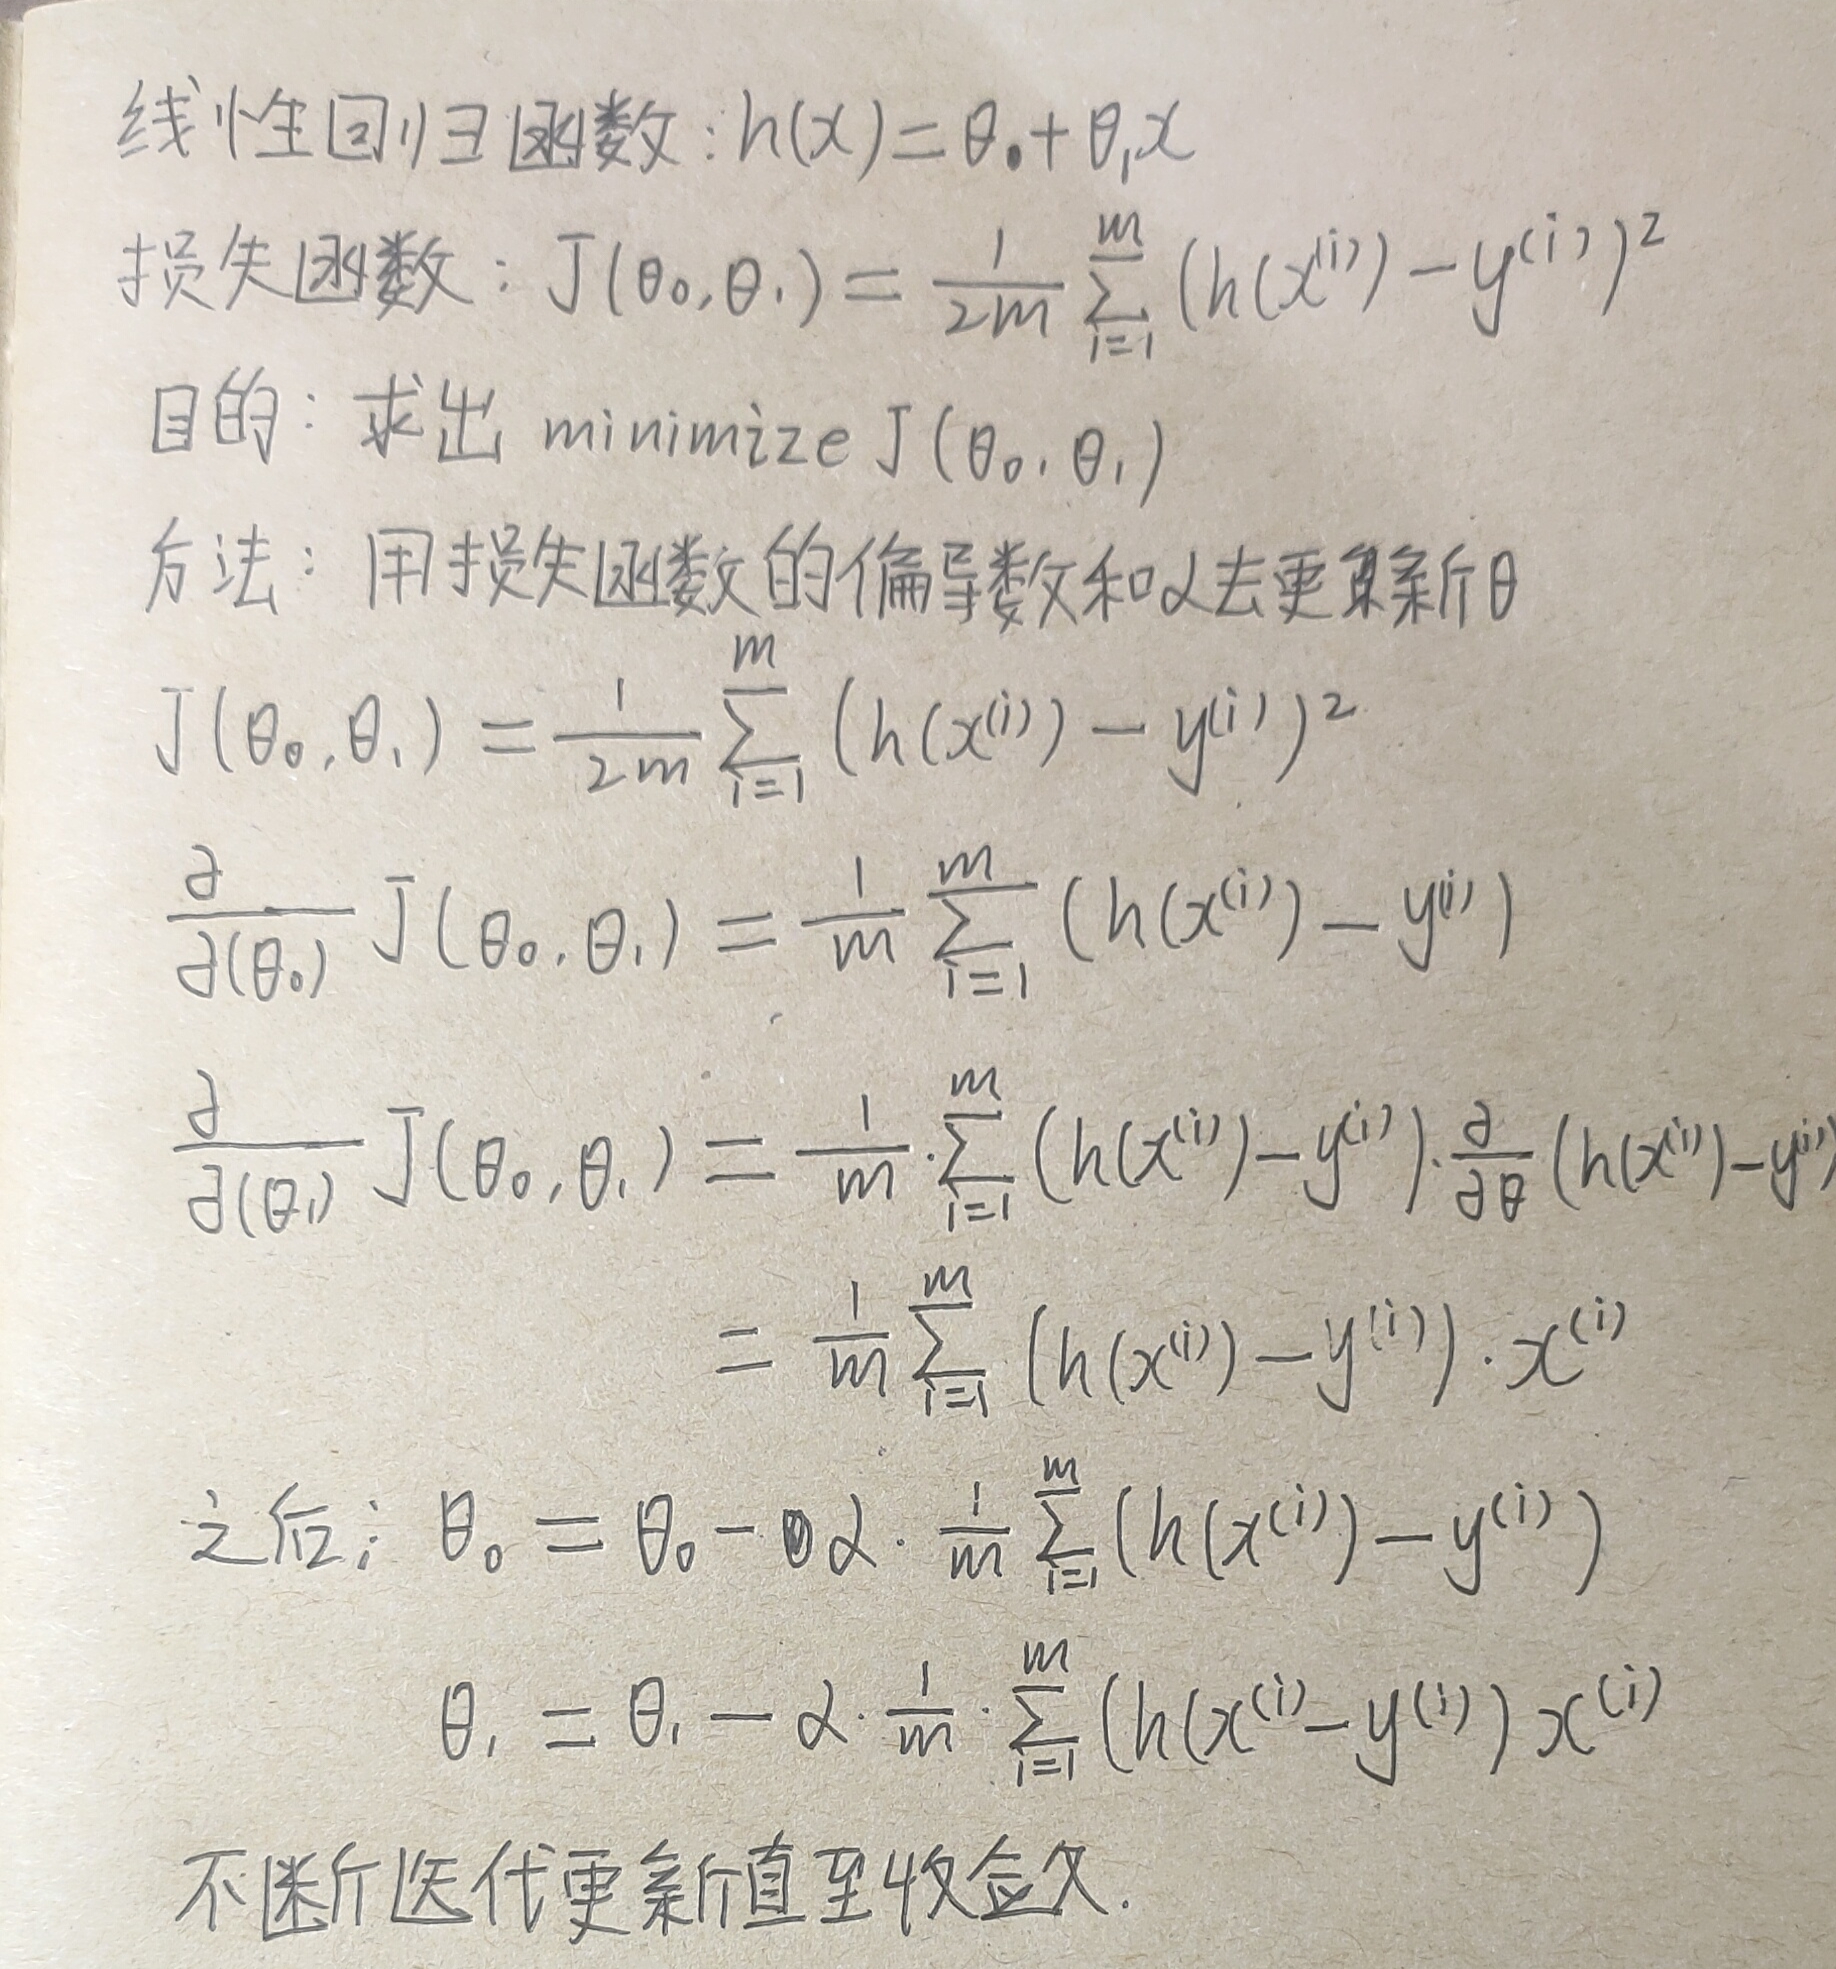 线性回归函数：h(x)=θ₀+θ₁x
损失函数：J(θ₀,θ₁)=1/2m ∑_{i=1}^{m} (h(x⁽ⁱ⁾)-y⁽ⁱ⁾)²
目的：求出 minimize J(θ₀,θ₁)
方法：用损失函数的偏导数和α去更新θ
J(θ₀,θ₁)=1/2m ∑_{i=1}^{m} (h(x⁽ⁱ⁾)-y⁽ⁱ⁾)²
∂/∂(θ₀) J(θ₀,θ₁)=1/m ∑_{i=1}^{m} (h(x⁽ⁱ⁾)-y⁽ⁱ⁾)
∂/∂(θ₁) J(θ₀,θ₁)=1/m·∑_{i=1}^{m} (h(x⁽ⁱ⁾)-y⁽ⁱ⁾)·∂/∂θ (h(x⁽ⁱ⁾)-y⁽ⁱ⁾)
=1/m ∑_{i=1}^{m} (h(x⁽ⁱ⁾)-y⁽ⁱ⁾)·x⁽ⁱ⁾
之后：θ₀=θ₀-α·1/m ∑_{i=1}^{m} (h(x⁽ⁱ⁾)-y⁽ⁱ⁾)
θ₁=θ₁-α·1/m·∑_{i=1}^{m} (h(x⁽ⁱ⁾-y⁽ⁱ⁾)x⁽ⁱ⁾
不断迭代更新值至收敛.